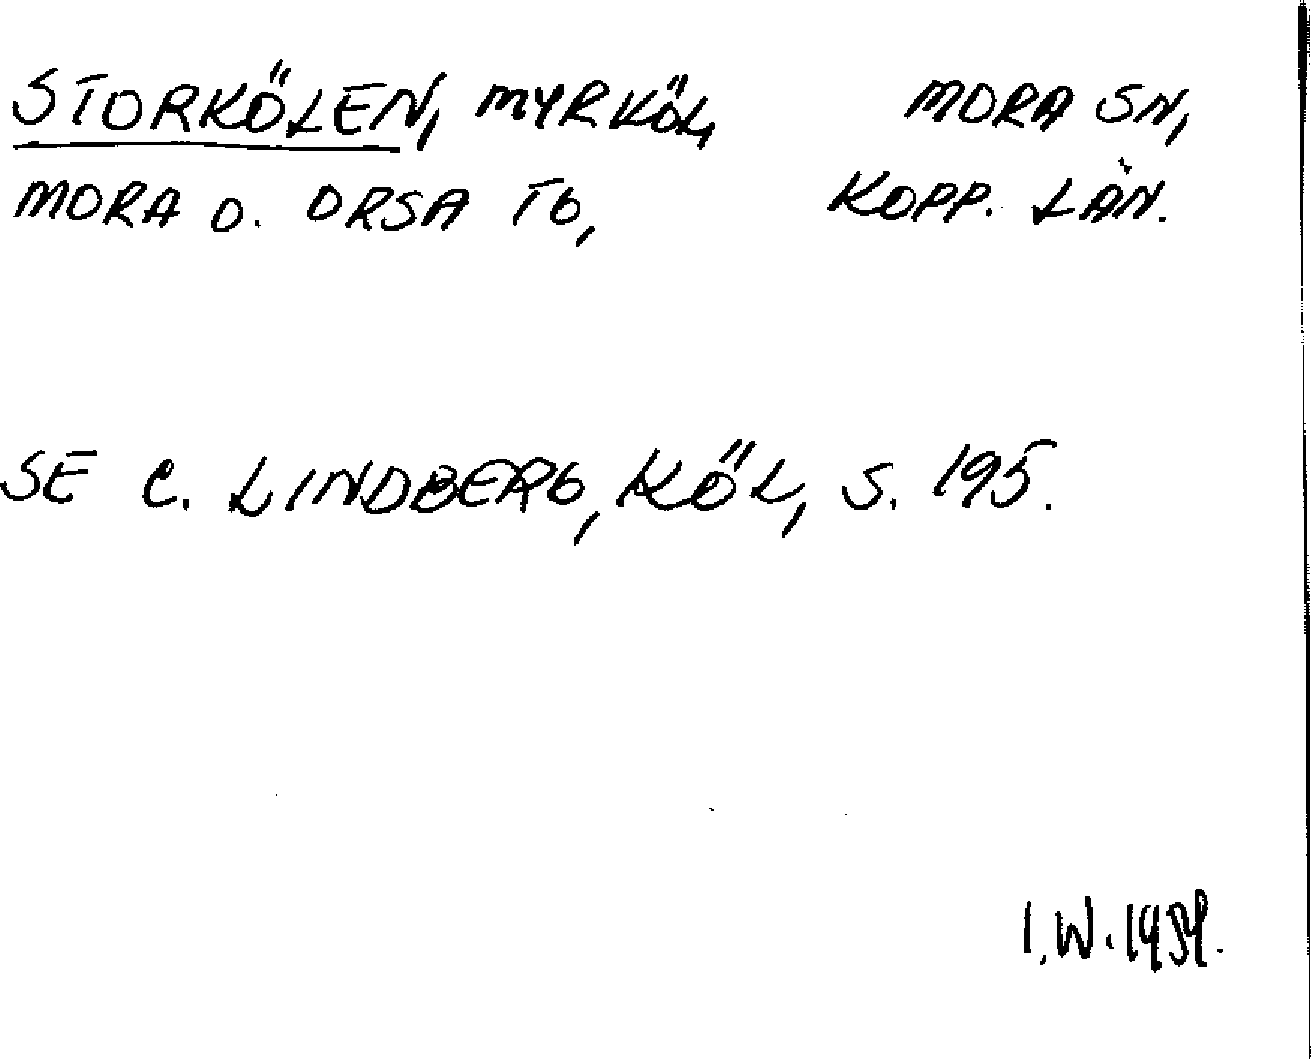 STORKÖLEN, MYRKÖL, MORA SN,
MORA O. ORSA TG, KOPP. LÄN.
SE C. LINDBERG, KÖL, S. 195.
I.W.